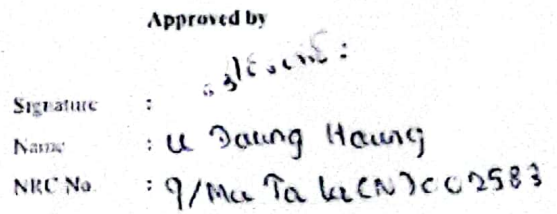 Approved by
Signature :
Name : U Daung Haung
NRC No. : 9/Ma Ta Na (N) 002583